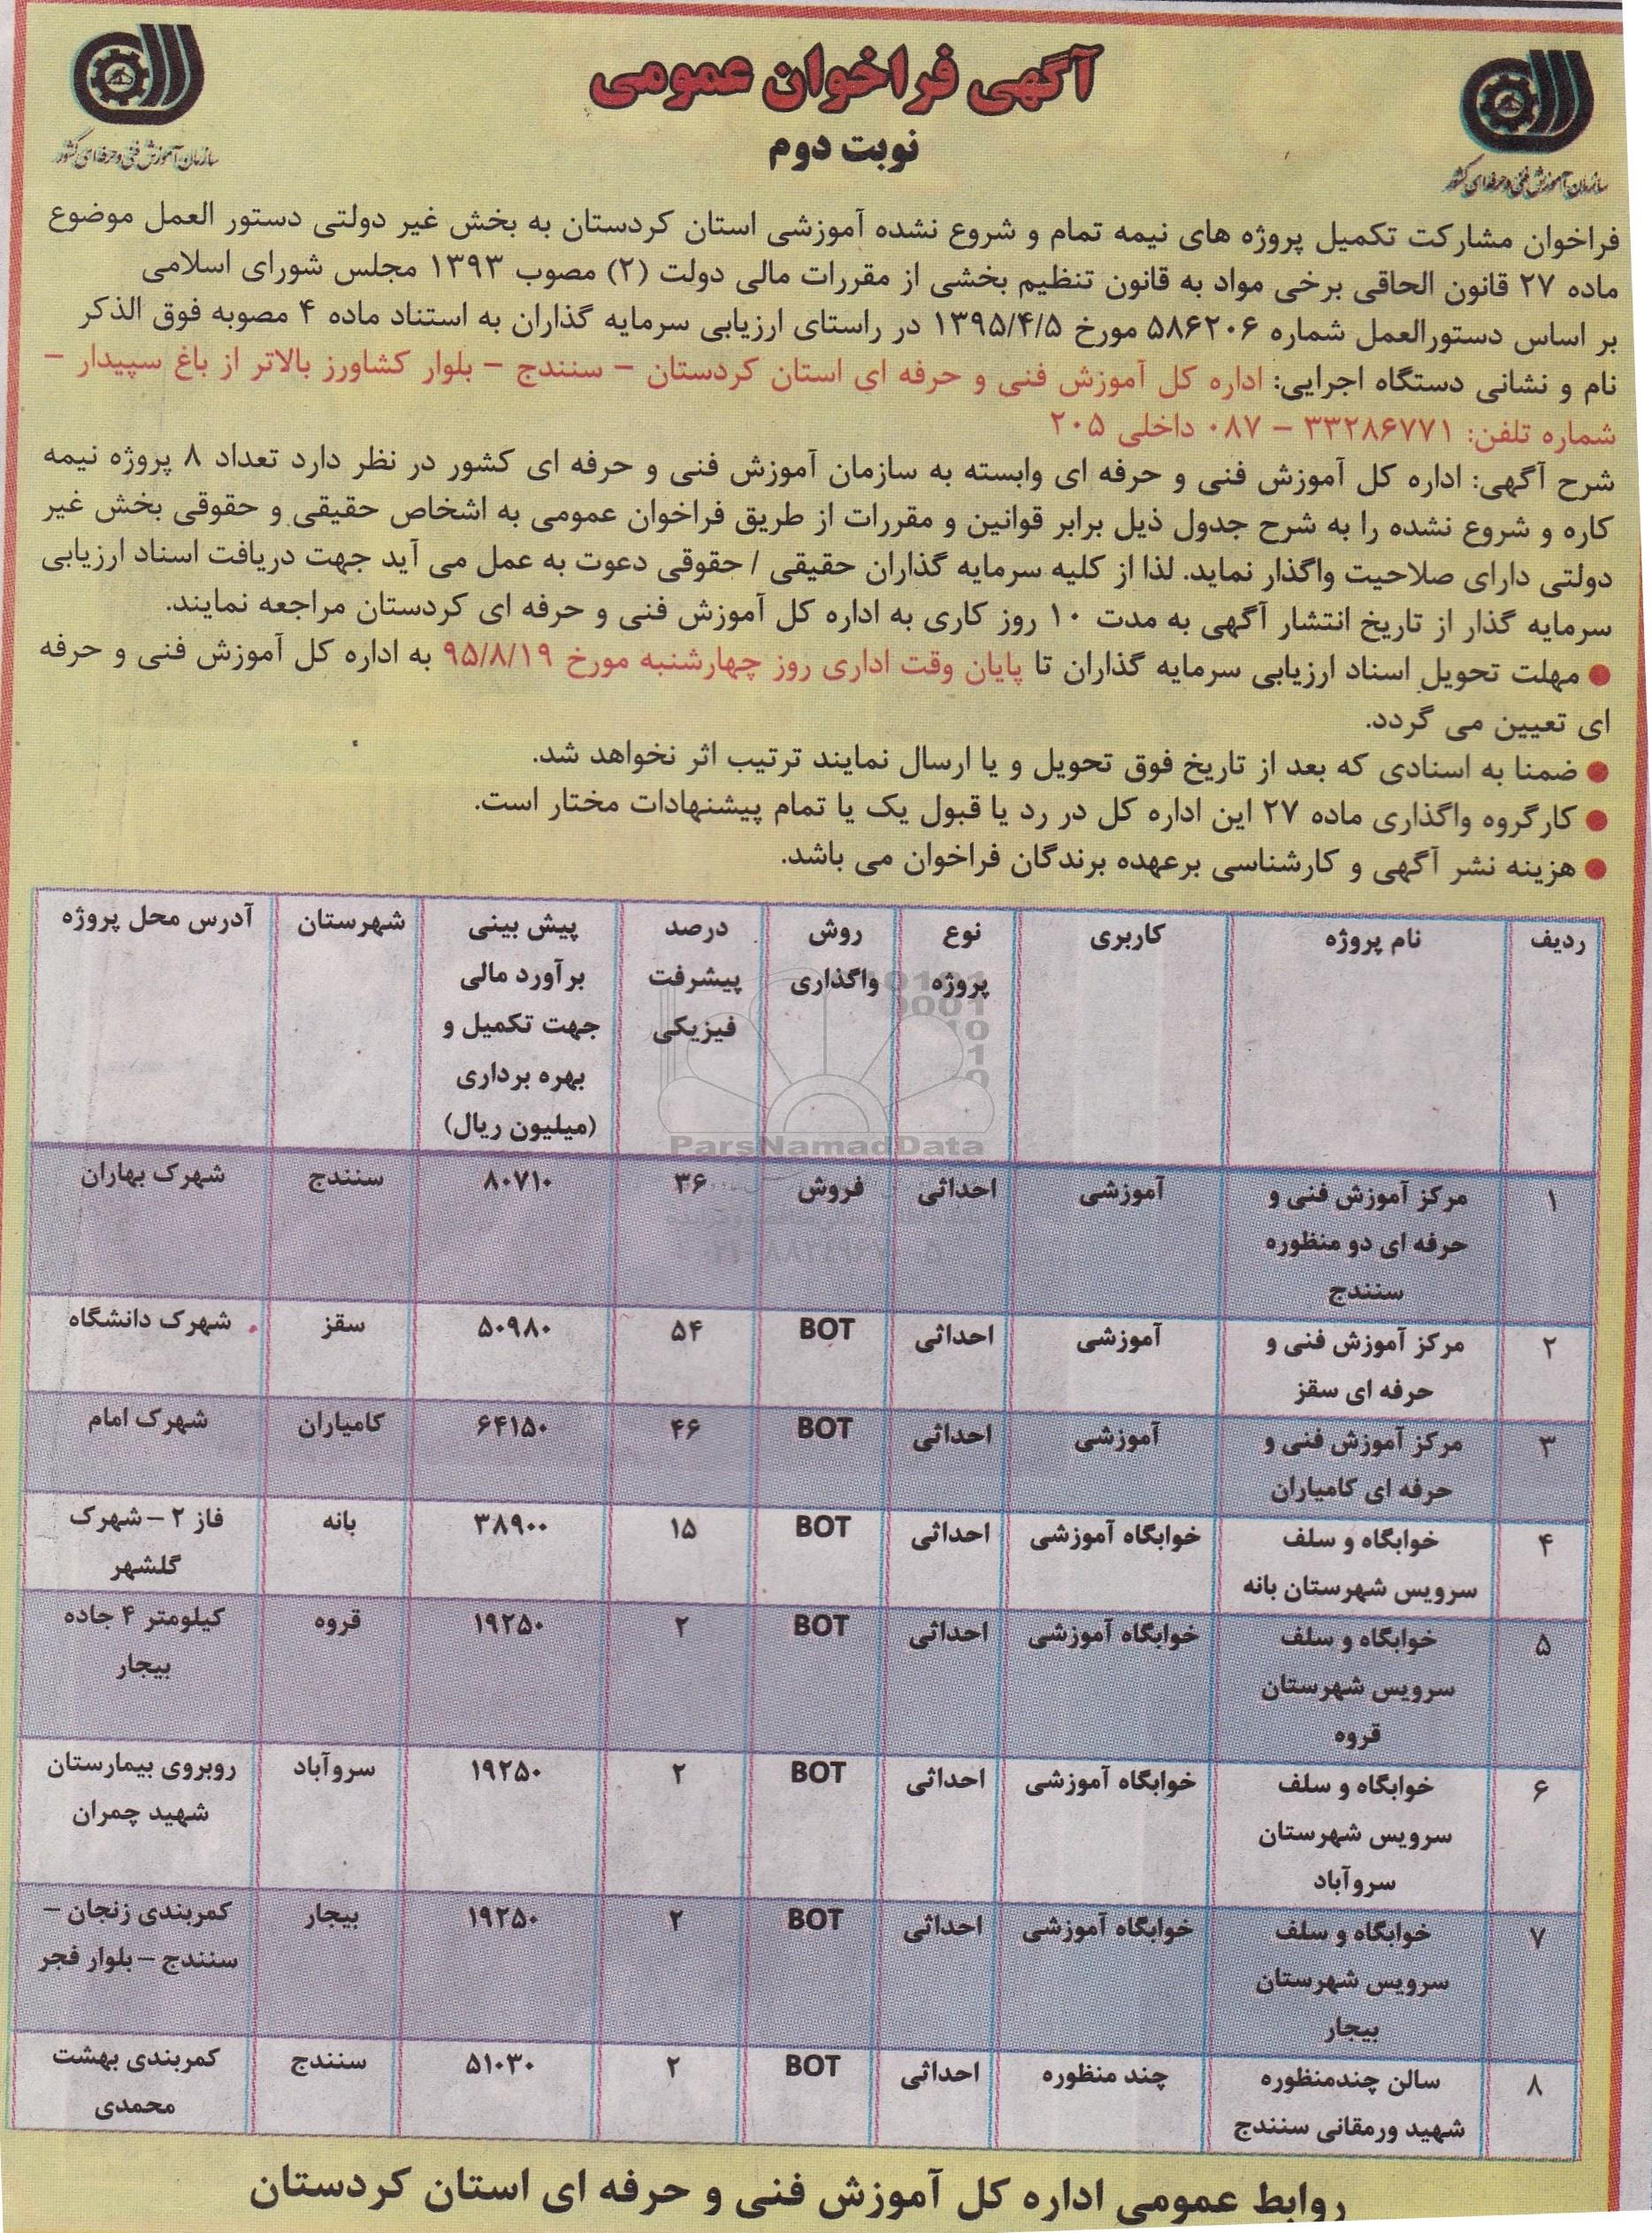 آگهی فراخوان عمومی
نوبت دوم
سازمان آموزش فنی و حرفه ای کشور
سازمان آموزش فنی و حرفه ای کشور
فراخوان مشارکت تکمیل پروژه های نیمه تمام و شروع نشده آموزشی استان کردستان به بخش غیر دولتی دستور العمل موضوع
ماده ۲۷ قانون الحاقی برخی مواد به قانون تنظیم بخشی از مقررات مالی دولت (۲) مصوب ۱۳۹۳ مجلس شورای اسلامی
بر اساس دستورالعمل شماره ۵۸۶۲۰۶ مورخ ۱۳۹۵/۴/۵ در راستای ارزیابی سرمایه گذاران به استناد ماده ۴ مصوبه فوق الذکر
نام و نشانی دستگاه اجرایی: اداره کل آموزش فنی و حرفه ای استان کردستان – سنندج – بلوار کشاورز بالاتر از باغ سپیدار –
شماره تلفن: ۳۳۲۸۶۷۷۱ – ۰۸۷ داخلی ۲۰۵
شرح آگهی: اداره کل آموزش فنی و حرفه ای وابسته به سازمان آموزش فنی و حرفه ای کشور در نظر دارد تعداد ۸ پروژه نیمه
کاره و شروع نشده را به شرح جدول ذیل برابر قوانین و مقررات از طریق فراخوان عمومی به اشخاص حقیقی و حقوقی بخش غیر
دولتی دارای صلاحیت واگذار نماید. لذا از کلیه سرمایه گذاران حقیقی / حقوقی دعوت به عمل می آید جهت دریافت اسناد ارزیابی
سرمایه گذار از تاریخ انتشار آگهی به مدت ۱۰ روز کاری به اداره کل آموزش فنی و حرفه ای کردستان مراجعه نمایند.
● مهلت تحویل اسناد ارزیابی سرمایه گذاران تا پایان وقت اداری روز چهارشنبه مورخ ۹۵/۸/۱۹ به اداره کل آموزش فنی و حرفه
ای تعیین می گردد.
● ضمنا به اسنادی که بعد از تاریخ فوق تحویل و یا ارسال نمایند ترتیب اثر نخواهد شد.
● کارگروه واگذاری ماده ۲۷ این اداره کل در رد یا قبول یک یا تمام پیشنهادات مختار است.
● هزینه نشر آگهی و کارشناسی برعهده برندگان فراخوان می باشد.
ردیف نام پروژه کاربری نوع پروژه روش واگذاری درصد پیشرفت فیزیکی پیش بینی برآورد مالی جهت تکمیل و بهره برداری (میلیون ریال) شهرستان آدرس محل پروژه
۱ مرکز آموزش فنی و حرفه ای دو منظوره سنندج آموزشی احداثی فروش ۳۶ ۸۰۷۱۰ سنندج شهرک بهاران
۲ مرکز آموزش فنی و حرفه ای سقز آموزشی احداثی BOT ۵۴ ۵۰۹۸۰ سقز شهرک دانشگاه
۳ مرکز آموزش فنی و حرفه ای کامیاران آموزشی احداثی BOT ۴۶ ۶۴۱۵۰ کامیاران شهرک امام
۴ خوابگاه و سلف سرویس شهرستان بانه خوابگاه آموزشی احداثی BOT ۱۵ ۳۸۹۰۰ بانه فاز ۲ – شهرک گلشهر
۵ خوابگاه و سلف سرویس شهرستان قروه خوابگاه آموزشی احداثی BOT ۲ ۱۹۲۵۰ قروه کیلومتر ۴ جاده بیجار
۶ خوابگاه و سلف سرویس شهرستان سروآباد خوابگاه آموزشی احداثی BOT ۲ ۱۹۲۵۰ سروآباد روبروی بیمارستان شهید چمران
۷ خوابگاه و سلف سرویس شهرستان بیجار خوابگاه آموزشی احداثی BOT ۲ ۱۹۲۵۰ بیجار کمربندی زنجان – سنندج – بلوار فجر
۸ سالن چندمنظوره شهید ورمقانی سنندج چند منظوره احداثی BOT ۲ ۵۱۰۳۰ سنندج کمربندی بهشت محمدی
ParsNamadData
روابط عمومی اداره کل آموزش فنی و حرفه ای استان کردستان